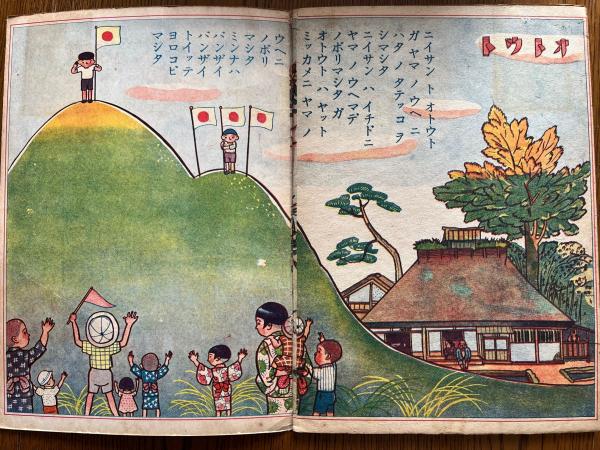 オトウト
ニイサン ト オトウト
ガ ヤマ ノ ウヘ ニ
ハタ ノ タテッコ ヲ
シマシタ
ニイサン ハ イチドニ
ヤマ ノ ウヘマデ
ノボリマシタ ガ
オトウト ハ ヤット
ミッカメニ ヤマ ノ
ウヘニ
ノボリ
マシタ
ミンナハ
バンザイ
バンザイ
トイッテ
ヨロコビ
マシタ